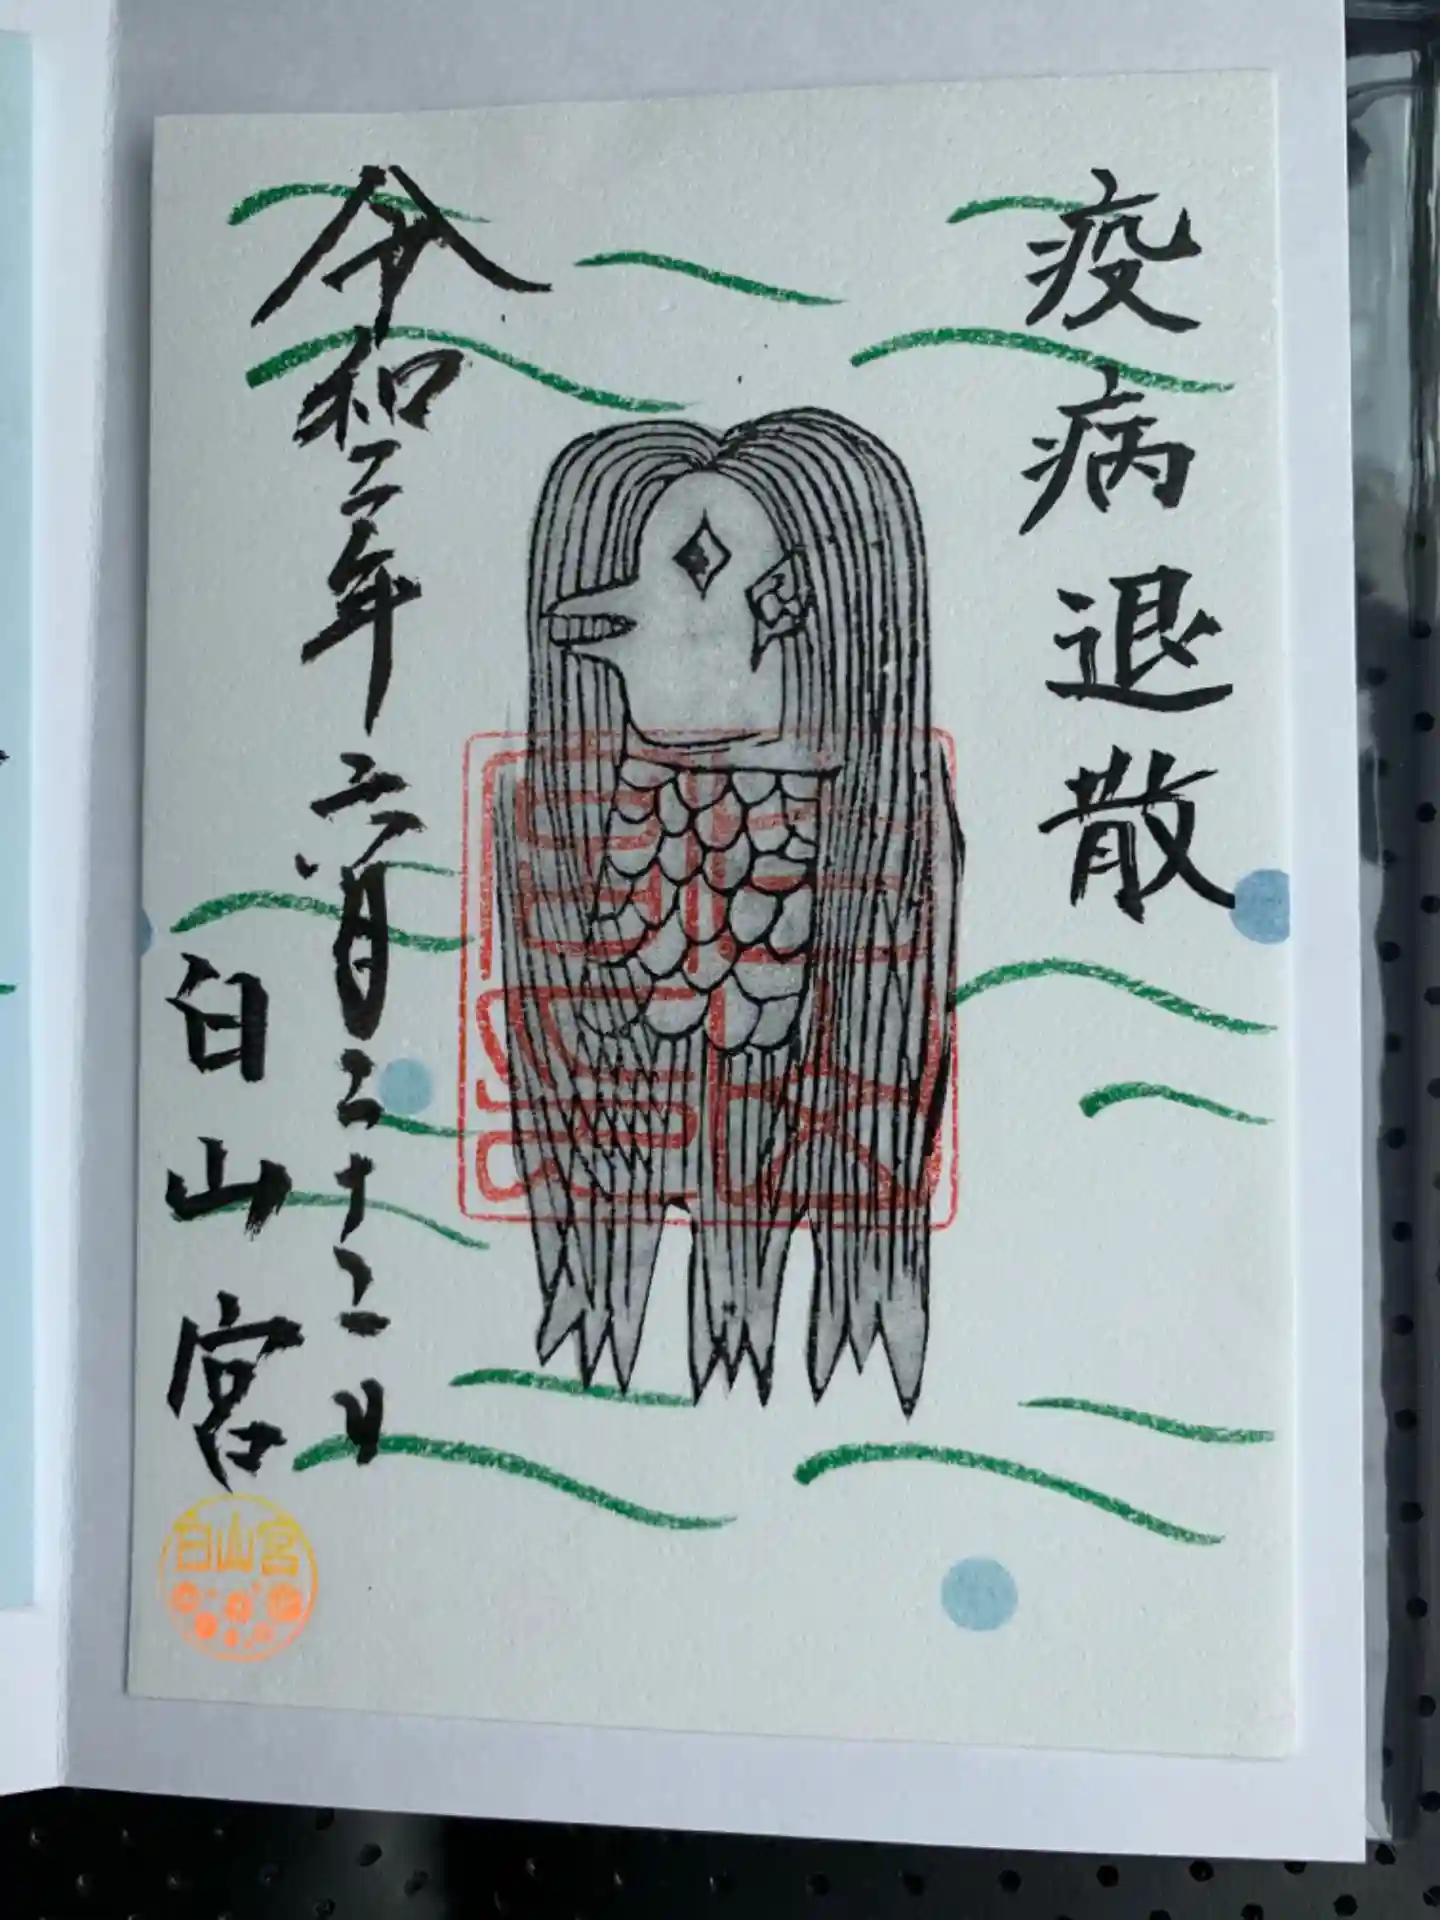 疫病退散
令和二年六月二十二日
白山宮
白山宮